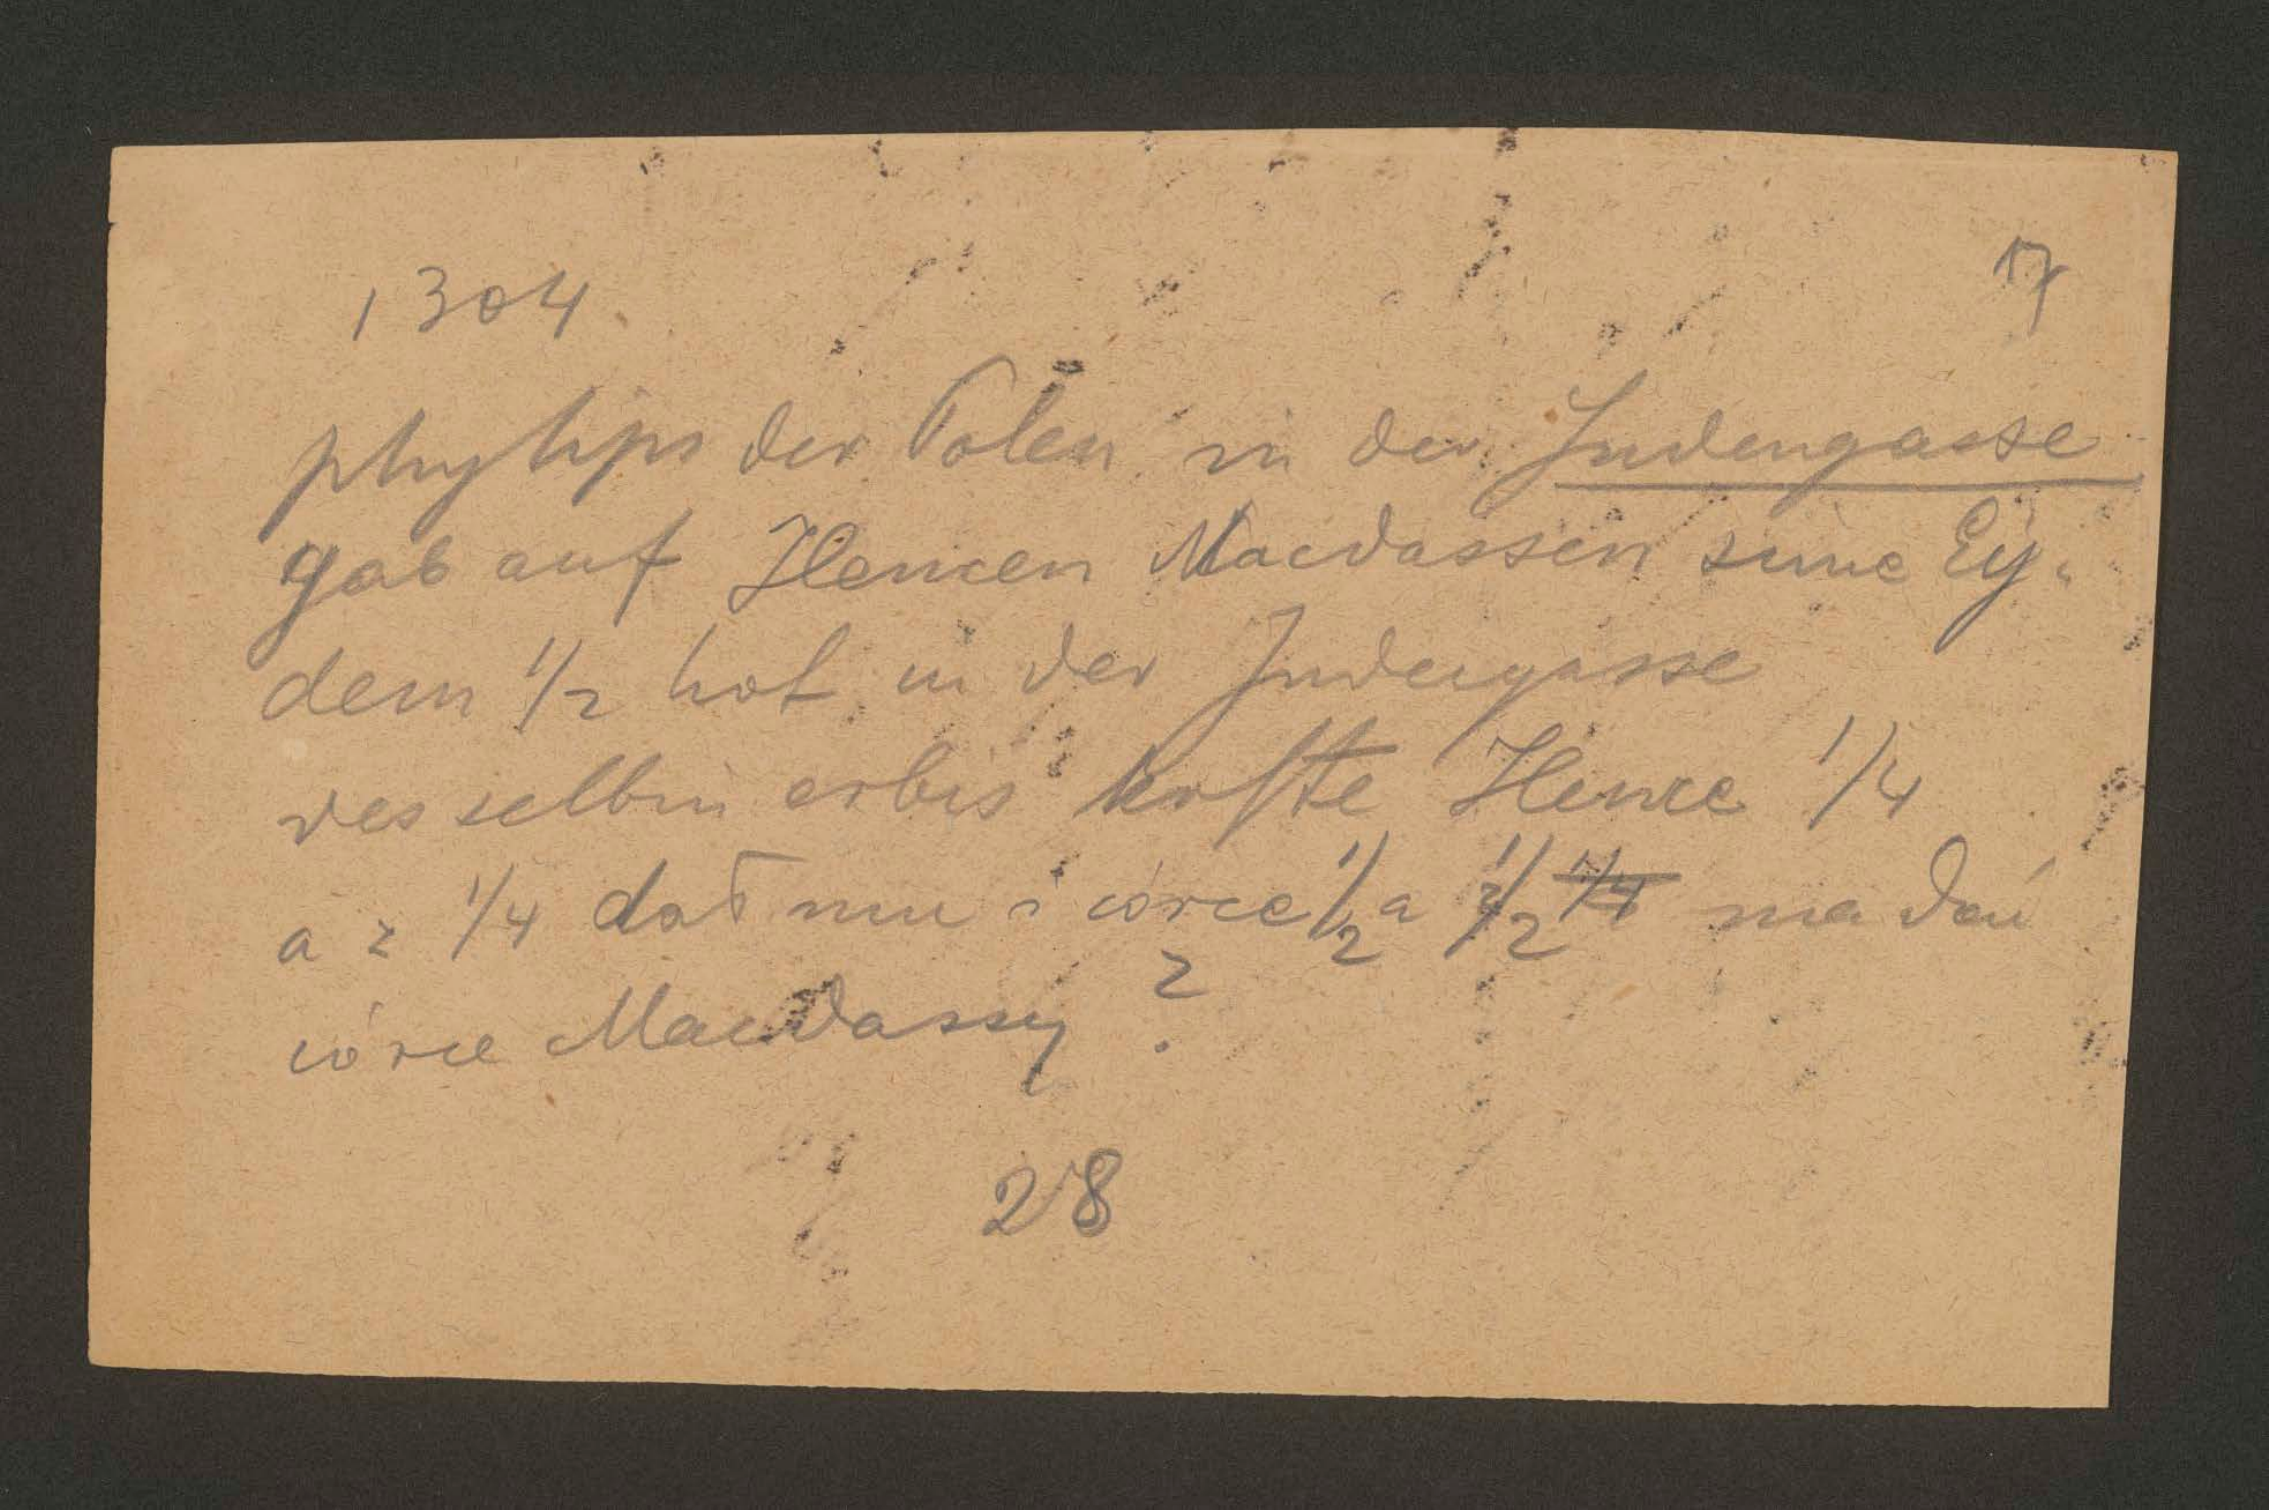 1304 17
phylips der Polen in der Judengasse
gab auf Hencen Macdassen sune Ey-
dem 1/2 hof in der Judengasse
desselbin erbis kofte Hence 1/4
a z 1/4 dał mu i córce 1/2 a 1/2 1/4 ma dać
córce Macdassy ?
28